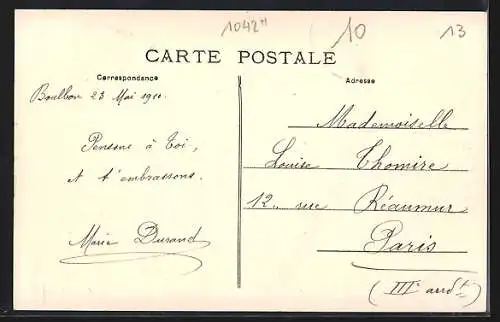 1042"
10
13
CARTE POSTALE
Correspondance
Adresse
Boulbon 23 Mai 1910.
Pensons à toi,
et t'embrassons.
Marie Durand
Mademoiselle
Louise Thomire
12, rue Réaumur
Paris
(IIIe arrdt)